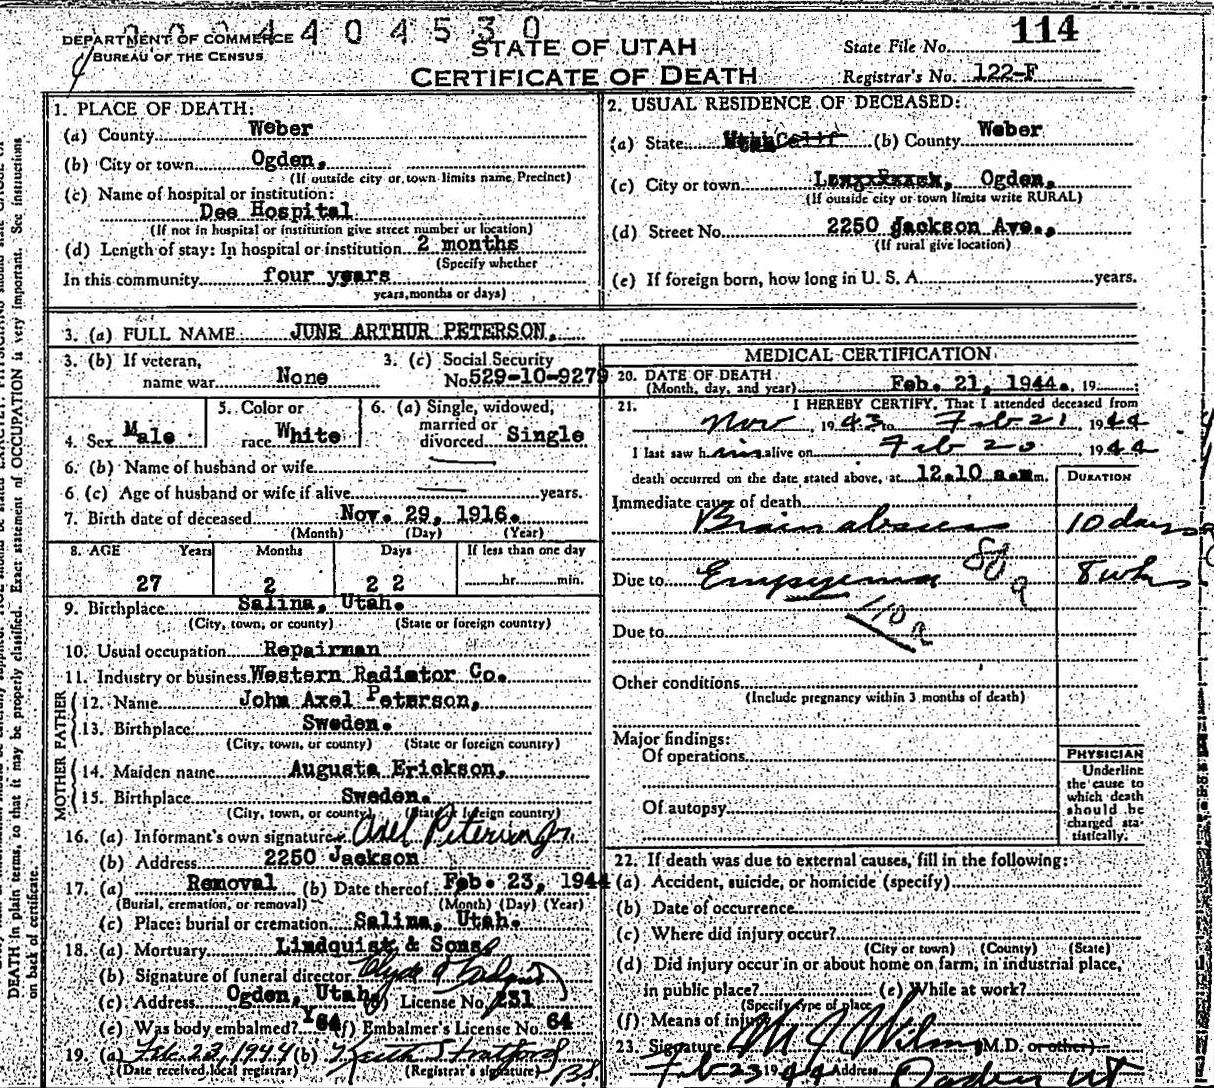 0 0 4 4 0 4 5 3 0
DEPARTMENT OF COMMERCE
BUREAU OF THE CENSUS
STATE OF UTAH
CERTIFICATE OF DEATH
State File No. 114
Registrar's No. 122-F
1. PLACE OF DEATH:
(a) County Weber
(b) City or town Ogden,
(If outside city or town limits name Precinct)
(c) Name of hospital or institution:
Dee Hospital
(If not in hospital or institution give street number or location)
(d) Length of stay: In hospital or institution 2 months
(Specify whether
In this community four years
years, months or days)
2. USUAL RESIDENCE OF DECEASED:
(a) State Utah Calif (b) County Weber
(c) City or town Ogden,
(If outside city or town limits write RURAL)
(d) Street No. 2250 Jackson Ave.,
(If rural give location)
(e) If foreign born, how long in U. S. A. years.
3. (a) FULL NAME JUNE ARTHUR PETERSON,
3. (b) If veteran, name war None
3. (c) Social Security No. 529-10-9279
4. Sex Male
5. Color or race White
6. (a) Single, widowed, married or divorced Single
6. (b) Name of husband or wife
6 (c) Age of husband or wife if alive years.
7. Birth date of deceased Nov. 29, 1916.
(Month) (Day) (Year)
8. AGE Years Months Days If less than one day
27 2 22 hr. min.
9. Birthplace Salina, Utah.
(City, town, or county) (State or foreign country)
10. Usual occupation Repairman
11. Industry or business Western Radiator Co.
FATHER
12. Name John Axel Peterson,
13. Birthplace Sweden.
(City, town, or county) (State or foreign country)
MOTHER
14. Maiden name Augusta Erickson,
15. Birthplace Sweden.
(City, town, or county) (State or foreign country)
16. (a) Informant's own signature Axel Peterson Jr
(b) Address 2250 Jackson
17. (a) Removal (b) Date thereof Feb. 23, 1944
(Burial, cremation, or removal) (Month) (Day) (Year)
(c) Place: burial or cremation Salina, Utah.
18. (a) Mortuary Lindquist & Sons
(b) Signature of funeral director Clyde Lindquist
(c) Address Ogden, Utah (d) License No. 231
(e) Was body embalmed? (f) Embalmer's License No. 64
19. (a) Feb. 23, 1944 (b) Keith Stratford
(Date received local registrar) (Registrar's signature)
MEDICAL CERTIFICATION
20. DATE OF DEATH
(Month, day, and year) Feb. 21, 1944. 19
21. I HEREBY CERTIFY, That I attended deceased from
Nov 1943 to Feb 21, 1944
I last saw him alive on Feb 20 1944
death occurred on the date stated above, at 12.10 a.m. m.
DURATION
Immediate cause of death
Brain abscess 10 days
Due to Empyema 8 wks
110 a
Due to
Other conditions
(Include pregnancy within 3 months of death)
Major findings:
Of operations
Of autopsy
PHYSICIAN
Underline
the cause to
which death
should be
charged sta-
tistically.
22. If death was due to external causes, fill in the following:
(a) Accident, suicide, or homicide (specify)
(b) Date of occurrence
(c) Where did injury occur?
(City or town) (County) (State)
(d) Did injury occur in or about home on farm, in industrial place,
in public place? (e) While at work?
(Specify type of place
(f) Means of injury
23. Signature M.D. or other)
Feb 23 1944 Address Ogden Ut
DEATH in plain terms, so that it may be properly classified. Exact statement of OCCUPATION is very important. See instructions
on back of certificate.